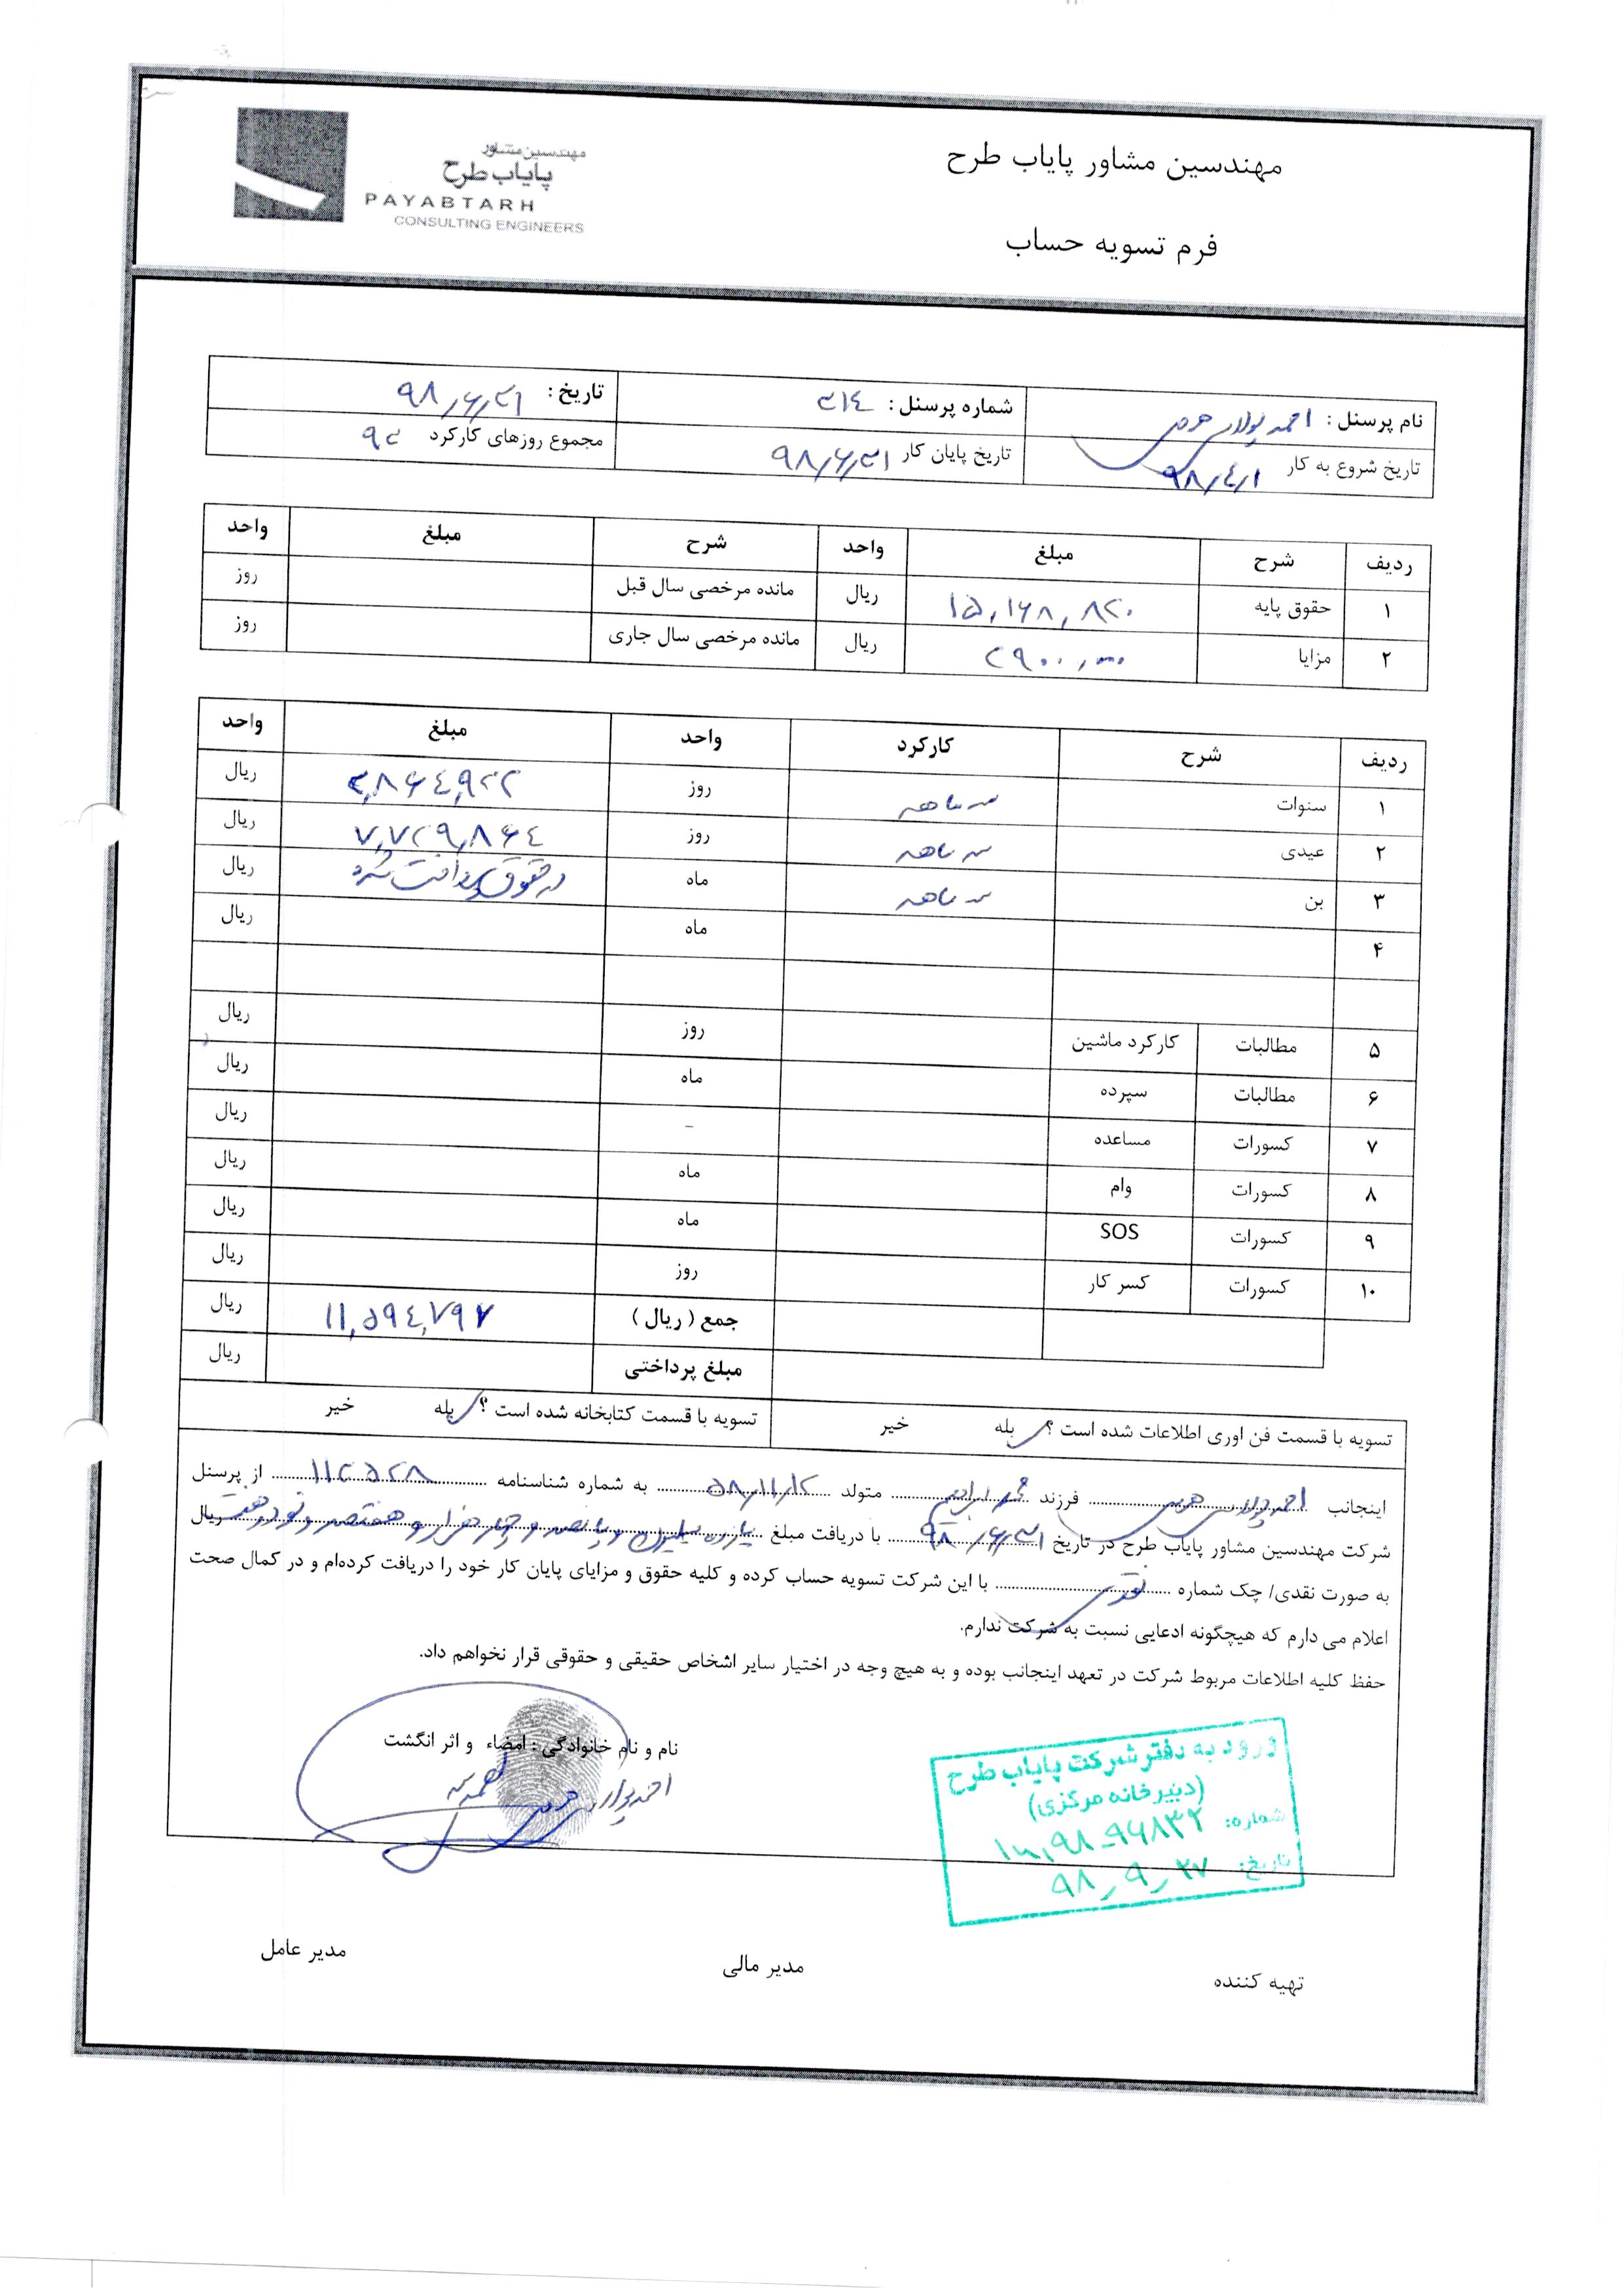 مهندسین مشاور پایاب طرح
فرم تسویه حساب
مهندسین مشاور
پایاب طرح
PAYABTARH
CONSULTING ENGINEERS
نام پرسنل : احمد شماره پرسنل : ۳۱۴ تاریخ : ۹۸/۶/۳۱
تاریخ شروع به کار ۹۸/۴/۱ تاریخ پایان کار ۹۸/۶/۳۱ مجموع روزهای کارکرد ۹۳
ردیف شرح مبلغ واحد شرح مبلغ واحد
۱ حقوق پایه ۱۵,۱۶۸,۸۲۰ ریال مانده مرخصی سال قبل روز
۲ مزایا ۲۹۰۰,۰۰۰ ریال مانده مرخصی سال جاری روز
ردیف شرح کارکرد واحد مبلغ واحد
۱ سنوات سه ماهه روز ۳,۸۶۴,۹۳۳ ریال
۲ عیدی سه ماهه روز ۷,۷۲۹,۸۶۴ ریال
۳ بن سه ماهه ماه در حقوق پرداخت شده ریال
۴ ماه ریال
۵ مطالبات کارکرد ماشین روز ریال
۶ مطالبات سپرده ماه ریال
۷ کسورات مساعده - ریال
۸ کسورات وام ماه ریال
۹ کسورات SOS ماه ریال
۱۰ کسورات کسر کار روز ریال
جمع ( ریال ) ۱۱,۵۹۴,۷۹۷ ریال
مبلغ پرداختی ریال
تسویه با قسمت فن اوری اطلاعات شده است ؟ بله خیر تسویه با قسمت کتابخانه شده است ؟ بله خیر
اینجانب احمد فرزند محمد ابراهیم متولد ۵۸/۱۱/۱۲ به شماره شناسنامه ۱۱۲۵۲۸ از پرسنل
شرکت مهندسین مشاور پایاب طرح در تاریخ ۹۸/۶/۳۱ با دریافت مبلغ یازده میلیون و پانصد و چهار هزار و هفتصد و نود و هفت ریال
به صورت نقدی/ چک شماره نقدی با این شرکت تسویه حساب کرده و کلیه حقوق و مزایای پایان کار خود را دریافت کرده‌ام و در کمال صحت
اعلام می دارم که هیچگونه ادعایی نسبت به شرکت ندارم.
حفظ کلیه اطلاعات مربوط شرکت در تعهد اینجانب بوده و به هیچ وجه در اختیار سایر اشخاص حقیقی و حقوقی قرار نخواهم داد.
نام و نام خانوادگی : امضاء و اثر انگشت
احمد
ورود به دفتر شرکت پایاب طرح
(دبیرخانه مرکزی)
شماره: ۹۸-۹۶۸۳۲
تاریخ: ۹۸/۹/۲۷
تهیه کننده مدیر مالی مدیر عامل